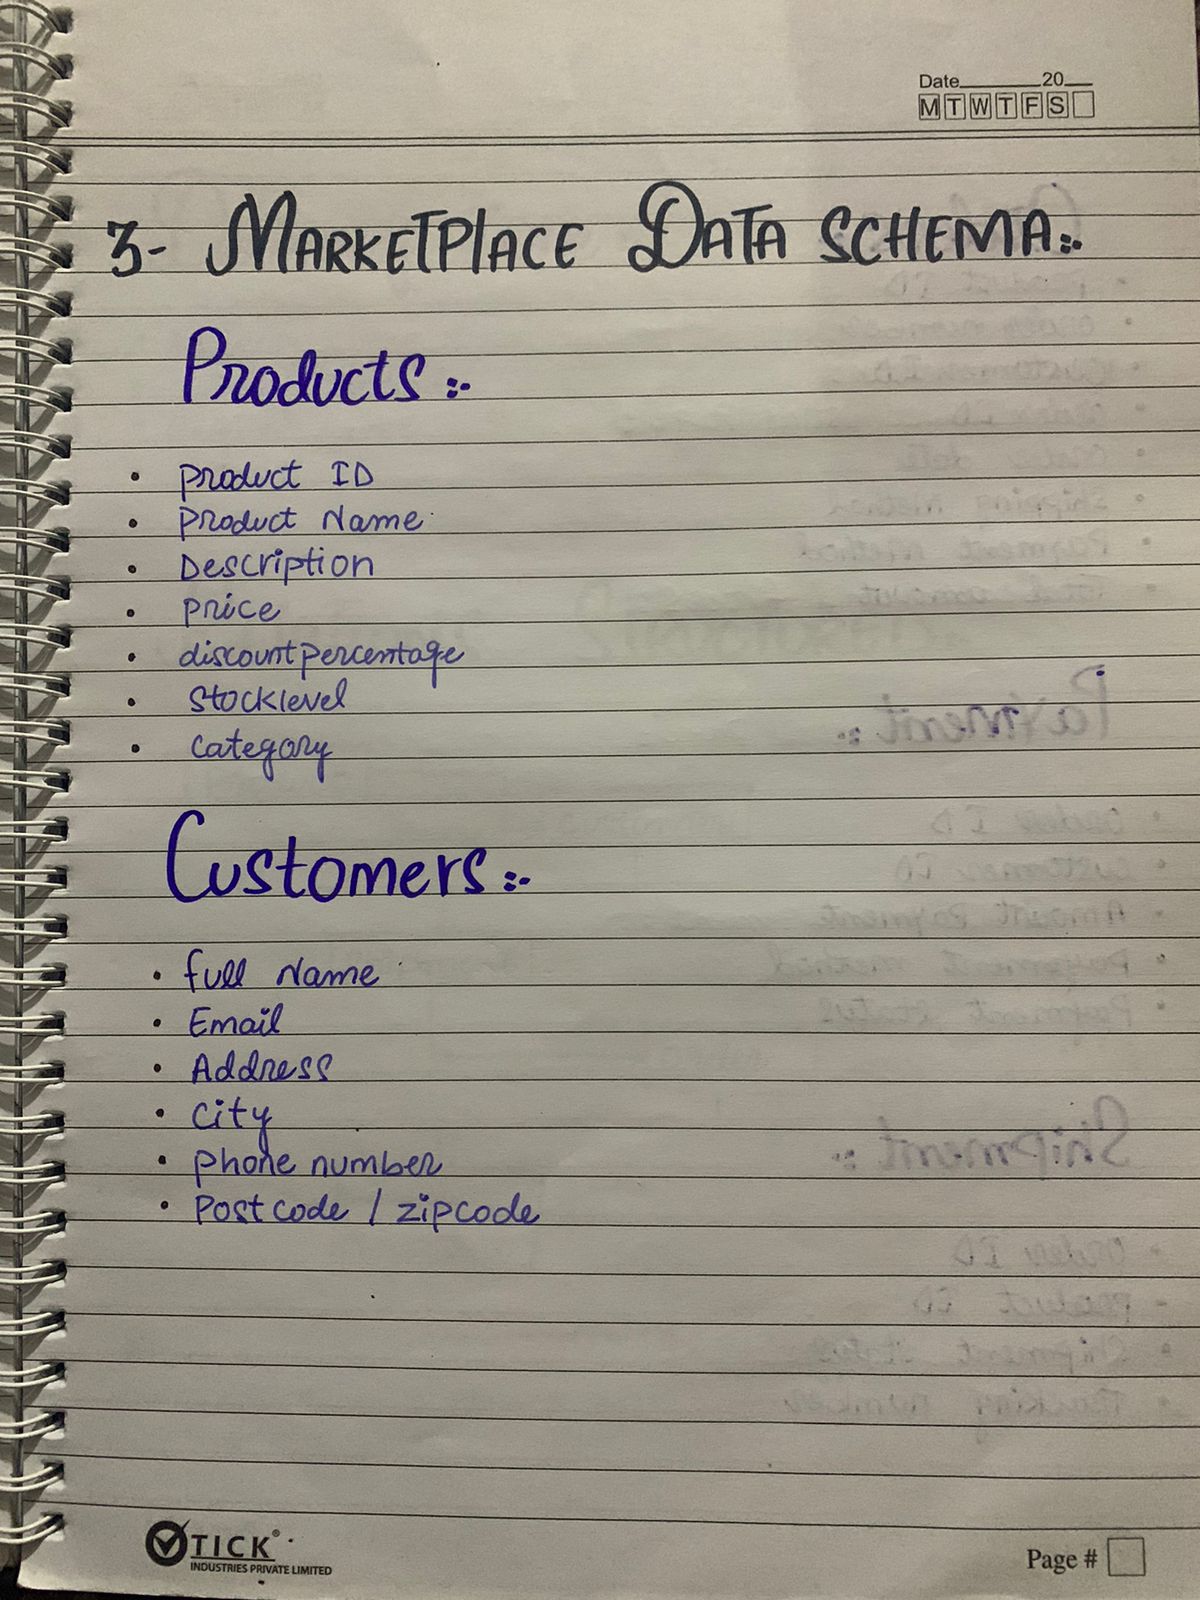 Date 20
M T W T F S
3- MARKETPLACE DATA SCHEMA:-
Products:-
• product ID
• product Name
• Description
• price
• discountpercentage
• stocklevel
• category
Customers:-
• full Name
• Email
• Address
• city
• phone number
• Postcode / zipcode
TICK®
INDUSTRIES PRIVATE LIMITED
Page #